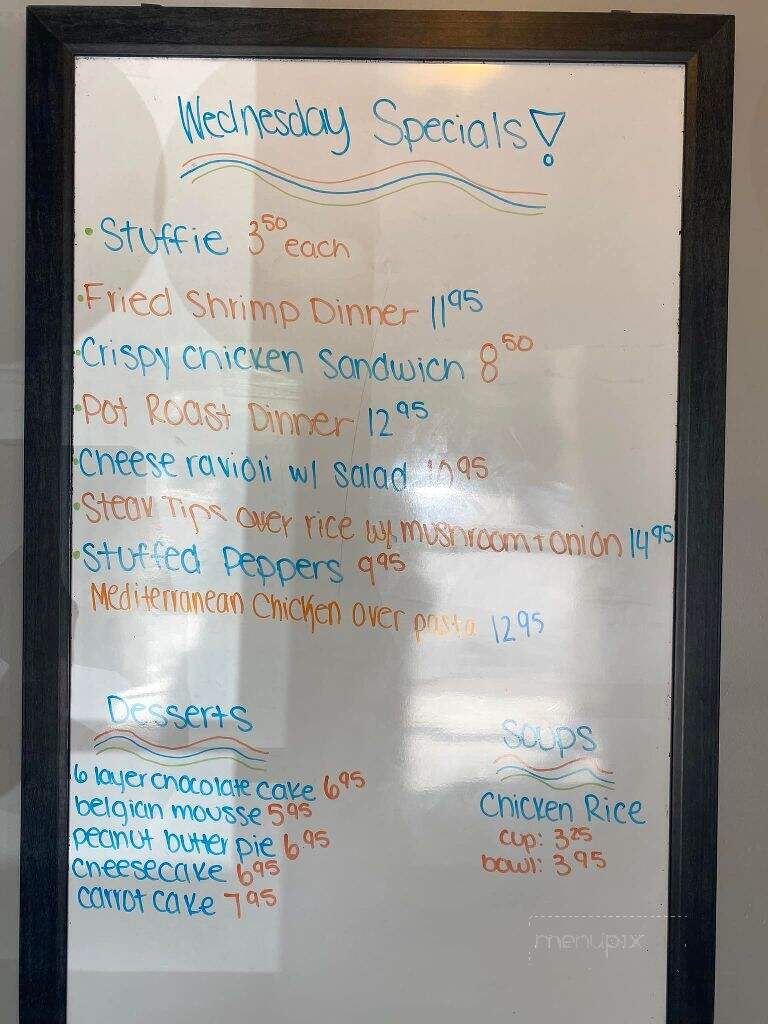 Wednesday Specials!
• Stuffie 3⁵⁰ each
• Fried Shrimp Dinner 11⁹⁵
• Crispy Chicken Sandwich 8⁵⁰
• Pot Roast Dinner 12⁹⁵
• Cheese ravioli w/ Salad 10⁹⁵
• Steak Tips over rice w/ mushroom + onion 14⁹⁵
• Stuffed Peppers 9⁹⁵
Mediterranean Chicken over pasta 12⁹⁵
Desserts
6 layer chocolate cake 6⁹⁵
belgian mousse 5⁹⁵
peanut butter pie 6.⁹⁵
cheesecake 6⁹⁵
carrot cake 7⁹⁵
Soups
Chicken Rice
cup: 3²⁵
bowl: 3⁹⁵
menupix